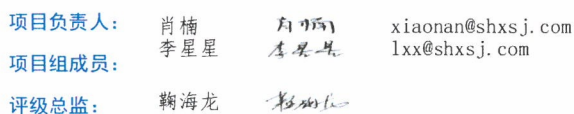 项目负责人： 肖楠 肖楠 xiaonan@shxsj.com
李星星 李星星 lxx@shxsj.com
项目组成员：
评级总监： 鞠海龙 鞠海龙